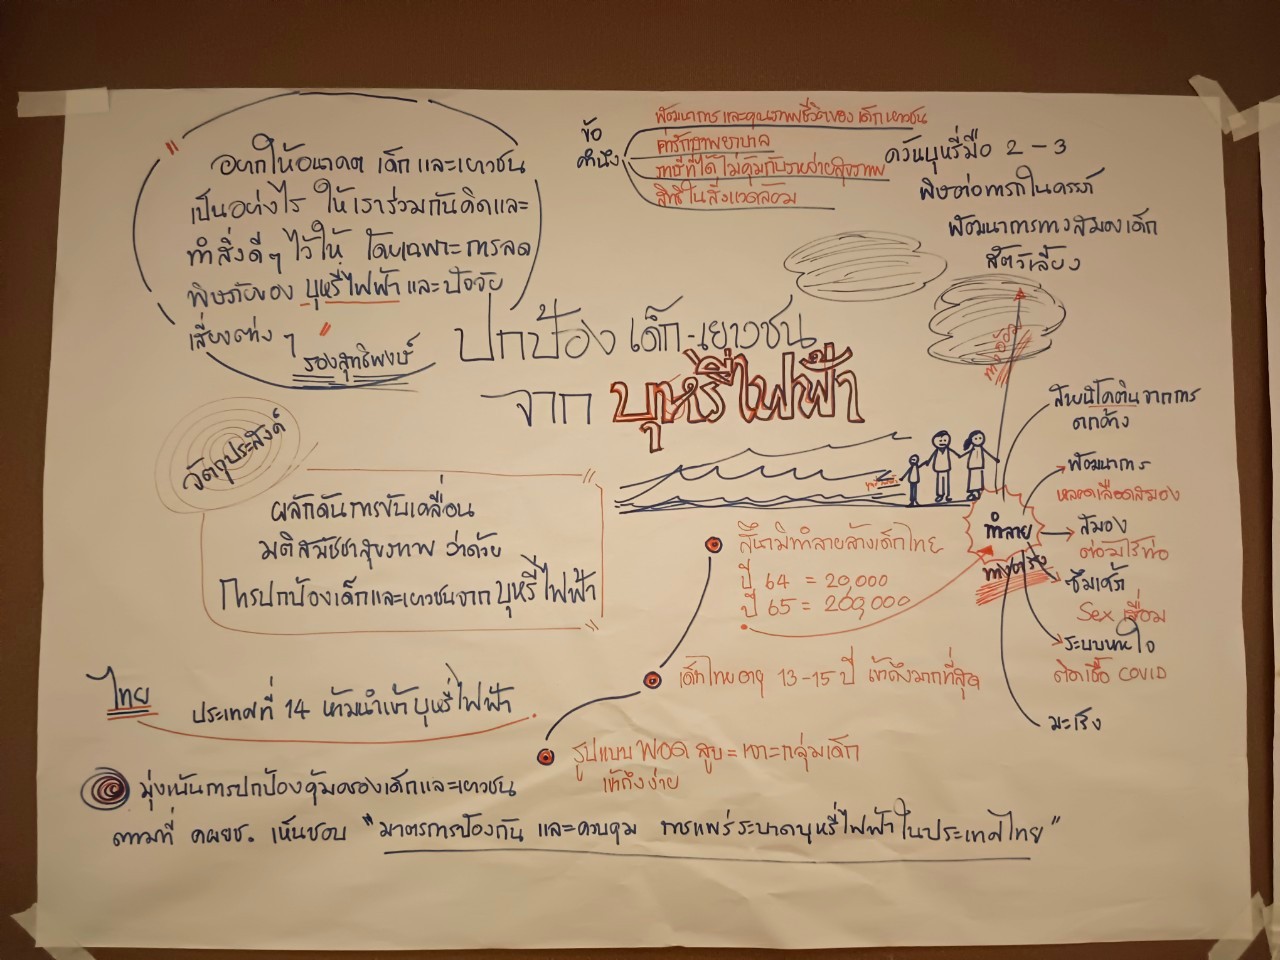 " อยากให้อนาคต เด็กและเยาวชน
เป็นอย่างไร ให้เราร่วมกันคิดและ
ทำสิ่งดีๆ ไว้ให้ โดยเฉพาะการลด
พิษภัยของ บุหรี่ไฟฟ้า และปัจจัย
เสี่ยงต่าง ๆ "
รองสุทธิพงษ์
ข้อ
คำนึง
พัฒนาการและคุณภาพชีวิตของ เด็ก เยาวชน
ค่ารักษาพยาบาล
ภาษีที่ได้ ไม่คุ้มกับรายจ่ายสุขภาพ
สิทธิในสิ่งแวดล้อม
ควันบุหรี่มือ 2 - 3
พิษต่อทารกในครรภ์
พัฒนาการทางสมองเด็ก
สัตว์เลี้ยง
ทางอ้อม
ปกป้อง เด็ก-เยาวชน
จาก บุหรี่ไฟฟ้า
วัตถุประสงค์
ผลักดันการขับเคลื่อน
มติสมัชชาสุขภาพ ว่าด้วย
การปกป้องเด็กและเยาวชนจาก บุหรี่ไฟฟ้า
ทำลาย
ทางตรง
นิโคตินจากการ
ตกค้าง
พัฒนาการ
หลอดเลือดสมอง
สมอง
ต่อมไร้ท่อ
ซึมเศร้า
Sex เสื่อม
ระบบหายใจ
ติดเชื้อ COVID
มะเร็ง
สึนามิทำลายล้างเด็กไทย
ปี 64 = 20,000
ปี 65 = 200,000
เด็กไทยอายุ 13-15 ปี เข้าถึงมากที่สุด
รูปแบบ พอด สูบ = เจาะกลุ่มเด็ก
เข้าถึงง่าย
ไทย ประเทศที่ 14 ห้ามนำเข้าบุหรี่ไฟฟ้า
มุ่งเน้นการปกป้องคุ้มครองเด็กและเยาวชน
ตามที่ คผยช. เห็นชอบ "มาตรการป้องกัน และควบคุม การแพร่ระบาดบุหรี่ไฟฟ้าในประเทศไทย"